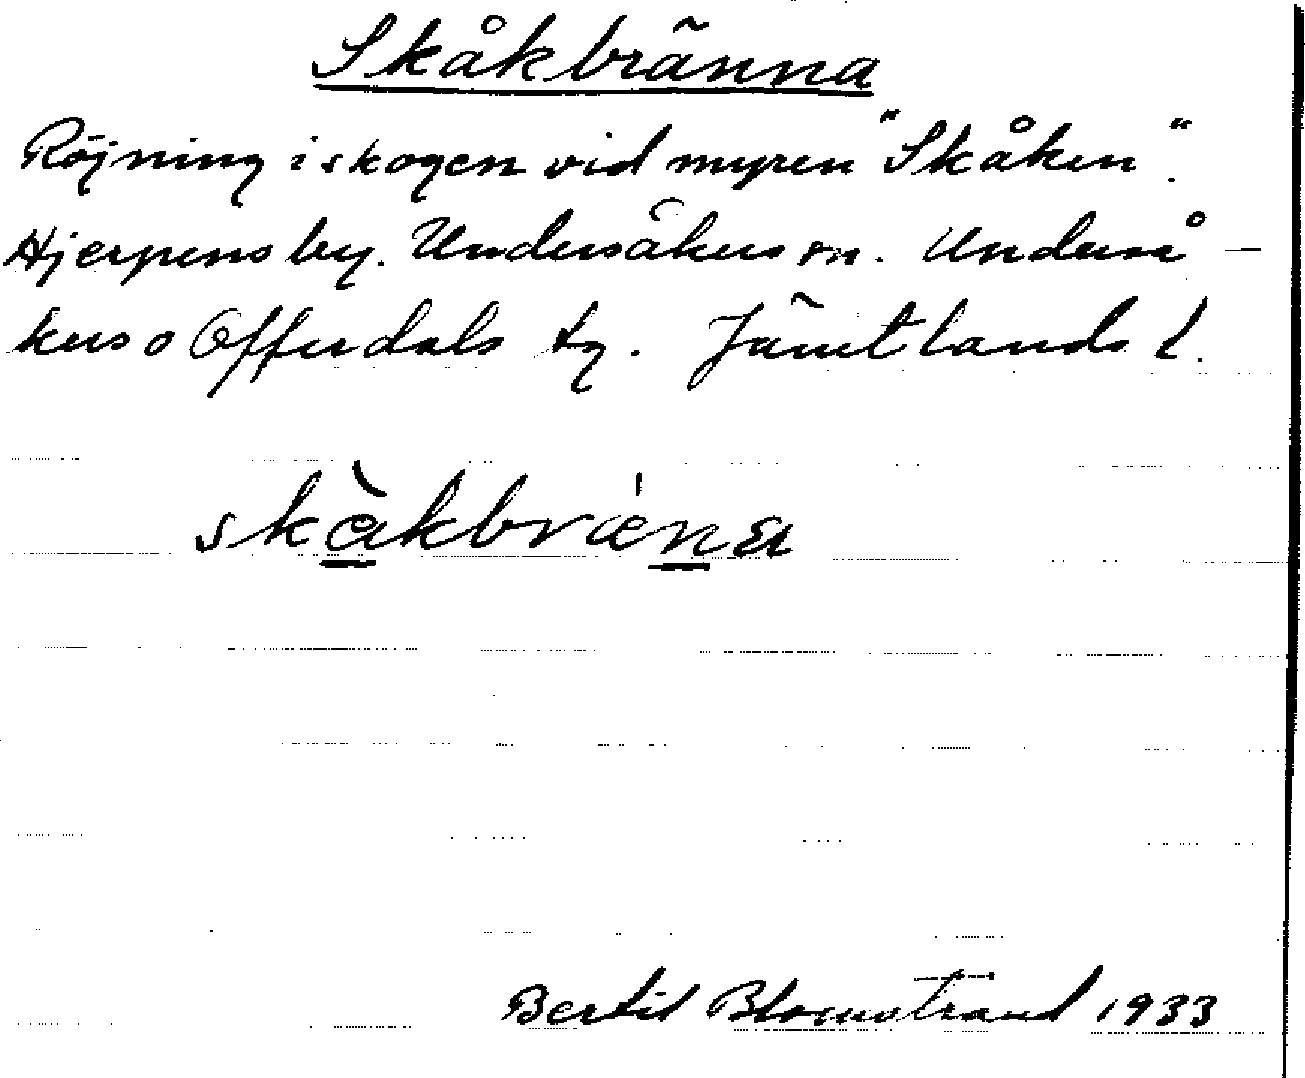 Skåkbränna
Röjning i skogen vid myren "Skåken".
Hjerpens by. Undersåkers sn. Underså-
kers o Offerdals tg. Jämtlands l.
skàkbræ̍na
Bertil Blomstrand 1933